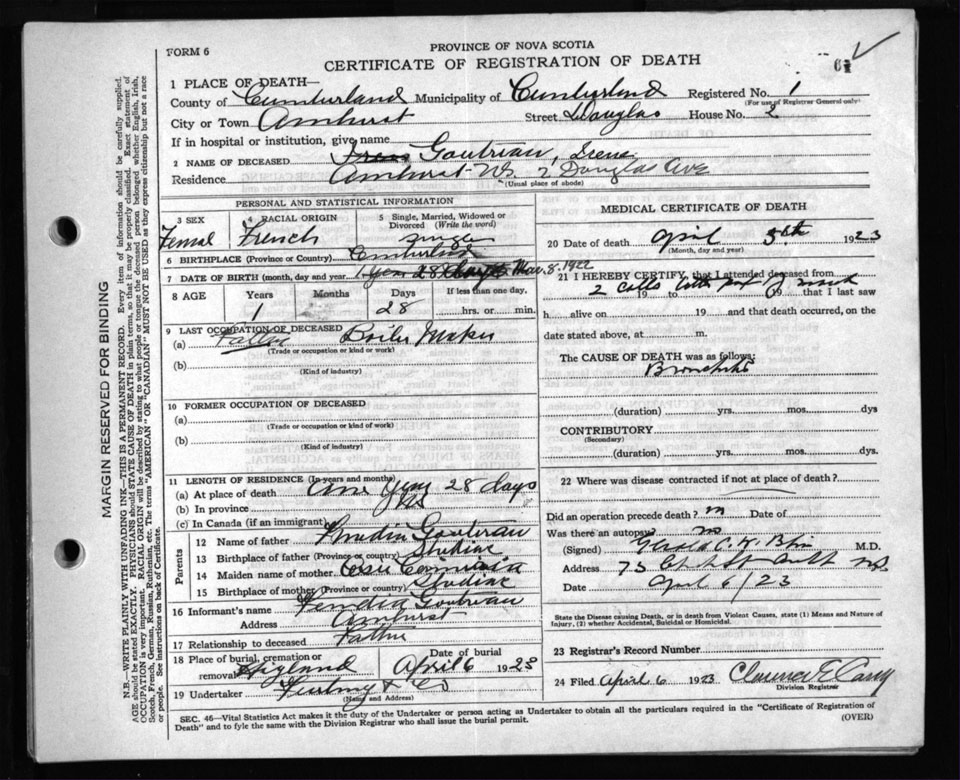 FORM 6
PROVINCE OF NOVA SCOTIA
CERTIFICATE OF REGISTRATION OF DEATH
1 PLACE OF DEATH—
County of Cumberland Municipality of Cumberland Registered No. 1
(For use of Registrar General only)
City or Town Amherst Street Douglas House No. 2
If in hospital or institution, give name
2 NAME OF DECEASED Goutreau, Irene
Residence Amherst NS 2 Douglas Ave
(Usual place of abode)
PERSONAL AND STATISTICAL INFORMATION
3 SEX
Femal
4 RACIAL ORIGIN
French
5 Single, Married, Widowed or
Divorced (Write the word)
Single
6 BIRTHPLACE (Province or Country) Cumberland
7 DATE OF BIRTH (month, day and year) 1 year 28 days Mar. 8. 1922
8 AGE Years Months Days If less than one day,
1 28 hrs. or min.
9 LAST OCCUPATION OF DECEASED
(a) Father Boiler Maker
(Trade or occupation or kind or work)
(b)
(Kind of industry)
10 FORMER OCCUPATION OF DECEASED
(a)
(Trade or occupation or kind of work)
(b)
(Kind of industry)
11 LENGTH OF RESIDENCE (In years and months)
(a) At place of death One Year 28 days
(b) In province
(c) In Canada (if an immigrant)
Parents
12 Name of father Goutreau
13 Birthplace of father (Province or country) Shediac
14 Maiden name of mother
15 Birthplace of mother (Province or country) Shediac
16 Informant's name Goutreau
Address Amherst
17 Relationship to deceased Father
18 Place of burial, cremation or
removal Highland
Date of burial
April 6 1923
19 Undertaker & Co
(Name and Address)
MEDICAL CERTIFICATE OF DEATH
20 Date of death April 5th 1923
(Month, day and year)
21 I HEREBY CERTIFY, that I attended deceased from
2 calls 19 to 19 that I last saw
h alive on 19 and that death occurred, on
date stated above, at m.
The CAUSE OF DEATH was as follows:
Bronchitis
(duration) yrs. mos. dys
CONTRIBUTORY
(Secondary)
(duration) yrs. mos. dys.
22 Where was disease contracted if not at place of death?
Did an operation precede death? no Date of
Was there an autopsy no
(Signed) M.D.
Address 75
Date April 6/23
State the Disease causing Death, or in death from Violent Causes, state (1) Means and Nature of
Injury, (2) whether Accidental, Suicidal or Homicidal.
23 Registrar's Record Number
24 Filed April 6 1923 Clarence E Casey
Division Registrar
SEC. 46—Vital Statistics Act makes it the duty of the Undertaker or person acting as Undertaker to obtain all the particulars required in the "Certificate of Registration of
Death" and to fyle the same with the Division Registrar who shall issue the burial permit.
(OVER)
MARGIN RESERVED FOR BINDING
N.B.—WRITE PLAINLY WITH UNFADING INK—THIS IS A PERMANENT RECORD. Every item of information should be carefully supplied.
AGE should be stated EXACTLY. PHYSICIANS should STATE CAUSE OF DEATH in plain terms, so that it may be properly classified. Exact statement of
OCCUPATION is very important. RACIAL ORIGIN will be described by stating to what people or tongue the deceased person belonged whether English, Irish,
Scotch, French, German, Russian, Ruthenian, etc. The terms "AMERICAN" OR "CANADIAN" MUST NOT BE USED as they express citizenship but not a race
or people. See instructions on back of Certificate.